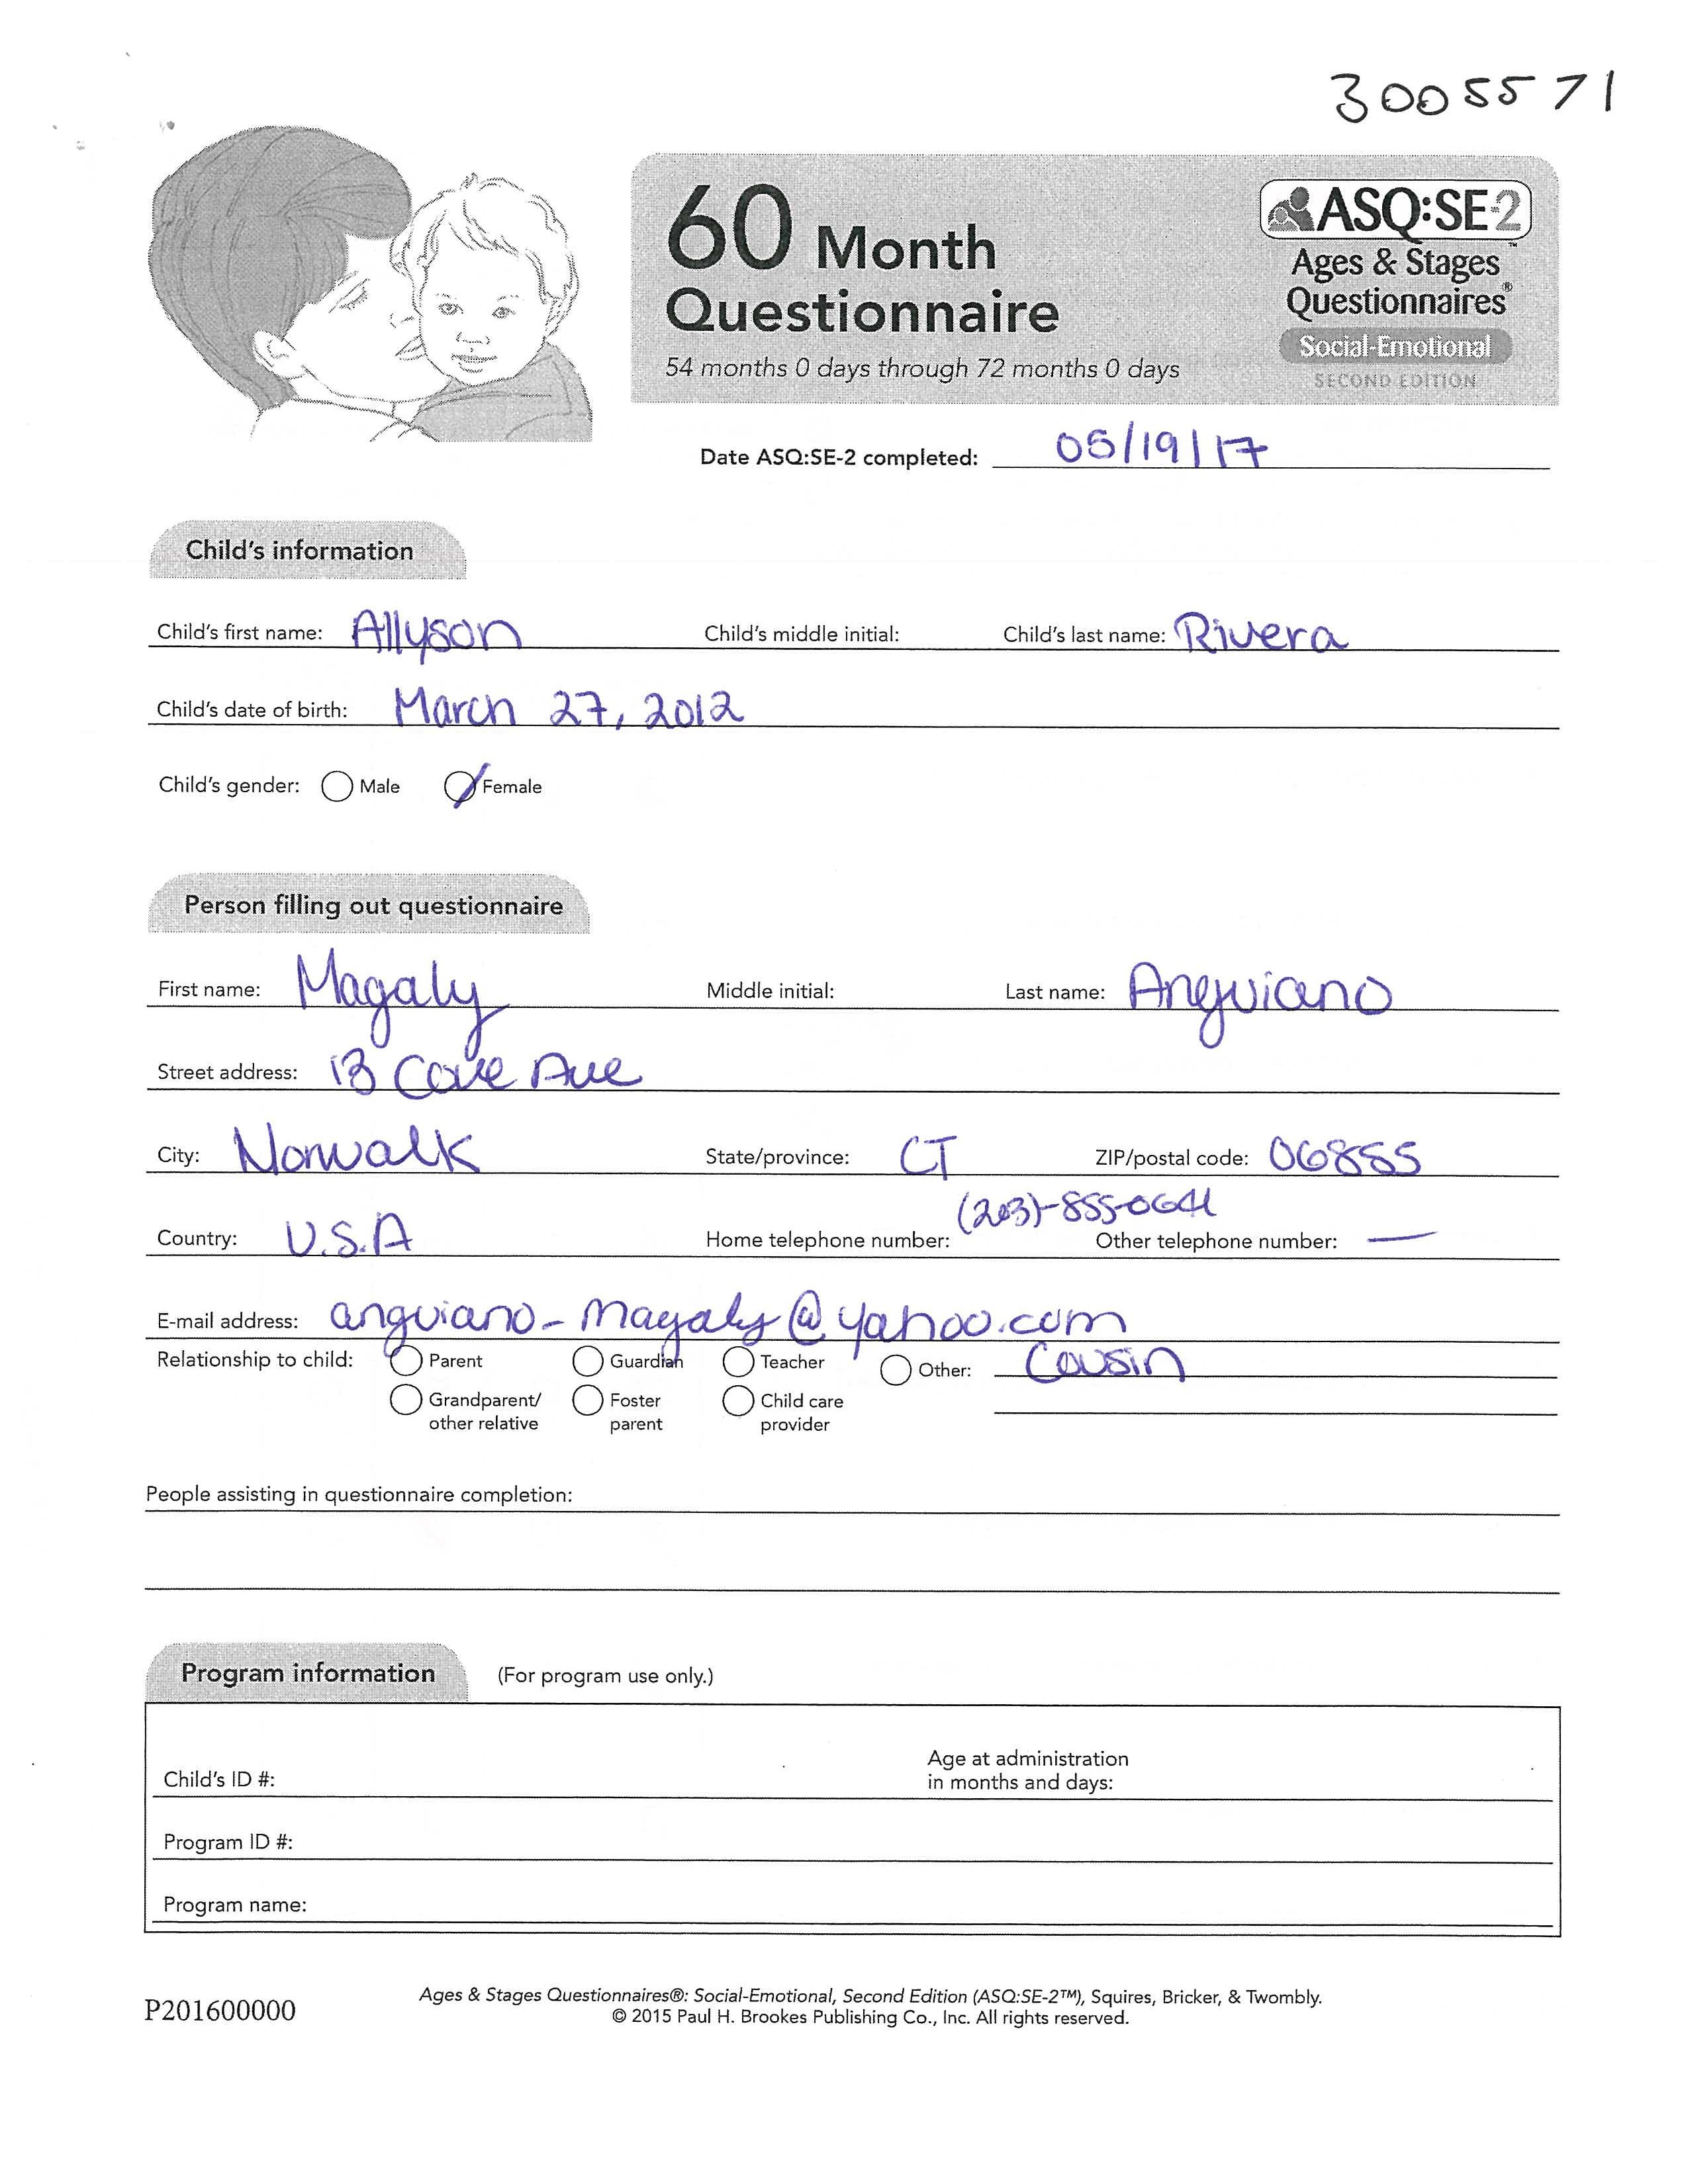 3005571
60 Month
Questionnaire
54 months 0 days through 72 months 0 days
ASQ:SE-2™
Ages & Stages
Questionnaires®
Social-Emotional
SECOND EDITION
Date ASQ:SE-2 completed: 05/19/17
Child's information
Child's first name: Allyson Child's middle initial: Child's last name: Rivera
Child's date of birth: March 27, 2012
Child's gender: Male Female
Person filling out questionnaire
First name: Magaly Middle initial: Last name: Anguiano
Street address: 13 Cove Ave
City: Norwalk State/province: CT ZIP/postal code: 06855
Country: U.S.A Home telephone number: (203)-855-0641 Other telephone number: —
E-mail address: anguiano-magaly@yahoo.com
Relationship to child: Parent Guardian Teacher Other: Cousin
Grandparent/ Foster Child care
other relative parent provider
People assisting in questionnaire completion:
Program information (For program use only.)
Age at administration
Child's ID #: in months and days:
Program ID #:
Program name:
P201600000
Ages & Stages Questionnaires®: Social-Emotional, Second Edition (ASQ:SE-2™), Squires, Bricker, & Twombly.
© 2015 Paul H. Brookes Publishing Co., Inc. All rights reserved.